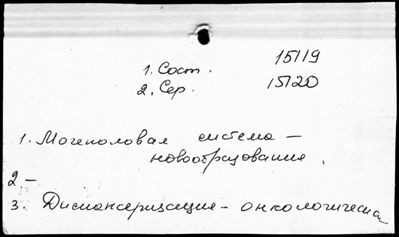 1. Сост. 15119
2. Сер. 15120
1. Мочеполовая система –
новообразования.
2 –
3. Диспансеризация – онкологическая